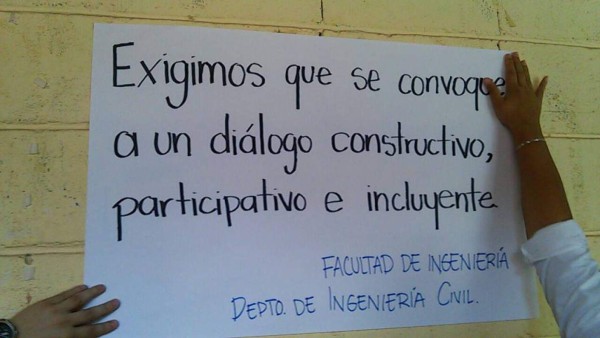 Exigimos que se convoque
a un diálogo constructivo,
participativo e incluyente
FACULTAD DE INGENIERÍA
DEPTO. DE INGENIERÍA CIVIL.